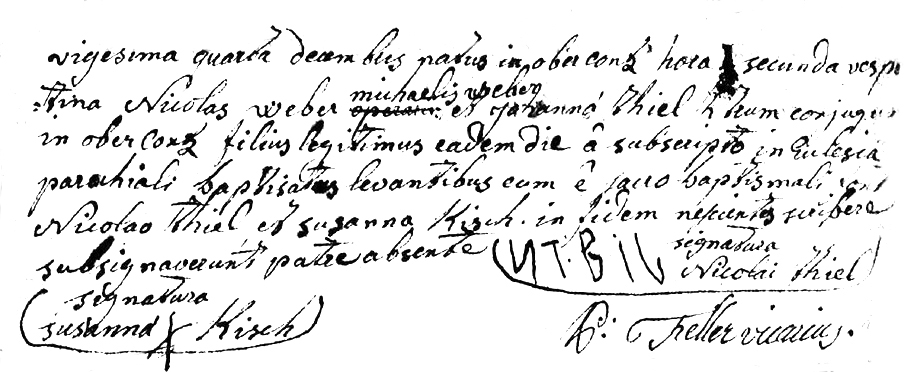 vigesima quarta decembris natus in oberconz hora secunda vespe
rtina Nicolas weber michaelis weber operarii et Joanna thiel conjugum
in oberconz filius legitimus eadem die â subscripto in Eclesia
parochiali baptisatus levantibus eum ê sacro baptismali font
Nicolao thiel et susanna Kisch. in fidem nescientes scribere
subsignaverunt patre absente
signatura
Nicolai thiel
signatura
susanna Kisch
P: Feller vicarius.